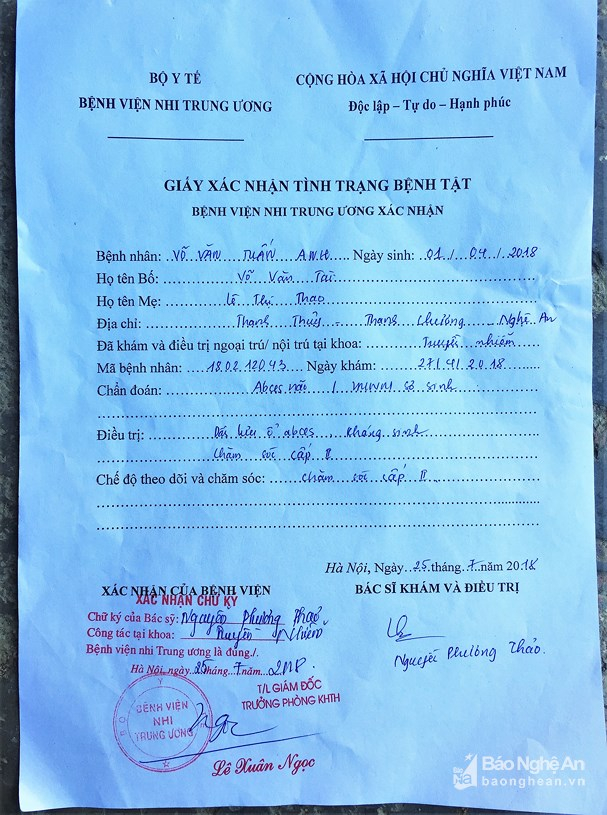 BỘ Y TẾ
BỆNH VIỆN NHI TRUNG ƯƠNG
CỘNG HÒA XÃ HỘI CHỦ NGHĨA VIỆT NAM
Độc lập – Tự do – Hạnh phúc
GIẤY XÁC NHẬN TÌNH TRẠNG BỆNH TẬT
BỆNH VIỆN NHI TRUNG ƯƠNG XÁC NHẬN
Bệnh nhân: VÕ VĂN TUẤN ANH Ngày sinh: 01/04/2018
Họ tên Bố: Võ Văn Tài
Họ tên Mẹ: Lê Thị Thao
Địa chỉ: Thanh Thủy - Thanh Chương Nghệ An
Đã khám và điều trị ngoại trú/ nội trú tại khoa: Truyền nhiễm
Mã bệnh nhân: 180212043 Ngày khám: 27/4/2018
Chẩn đoán: Abces não / VMNM sơ sinh
Điều trị: Dẫn lưu ổ abces, kháng sinh
Chăm sóc cấp II
Chế độ theo dõi và chăm sóc: chăm sóc cấp II
Hà Nội, Ngày 25 tháng 7 năm 2018
XÁC NHẬN CỦA BỆNH VIỆN
BÁC SĨ KHÁM VÀ ĐIỀU TRỊ
XÁC NHẬN CHỮ KÝ
Chữ ký của Bác sỹ: Nguyễn Phương Thảo
Công tác tại khoa: Truyền Nhiễm
Bệnh viện nhi Trung ương là đúng./.
Hà Nội, ngày 25 tháng 7 năm 2018
Nguyễn Phương Thảo
T/L GIÁM ĐỐC
TRƯỞNG PHÒNG KHTH
BỆNH VIỆN
NHI
TRUNG ƯƠNG
Lê Xuân Ngọc
Báo Nghệ An
baonghean.vn